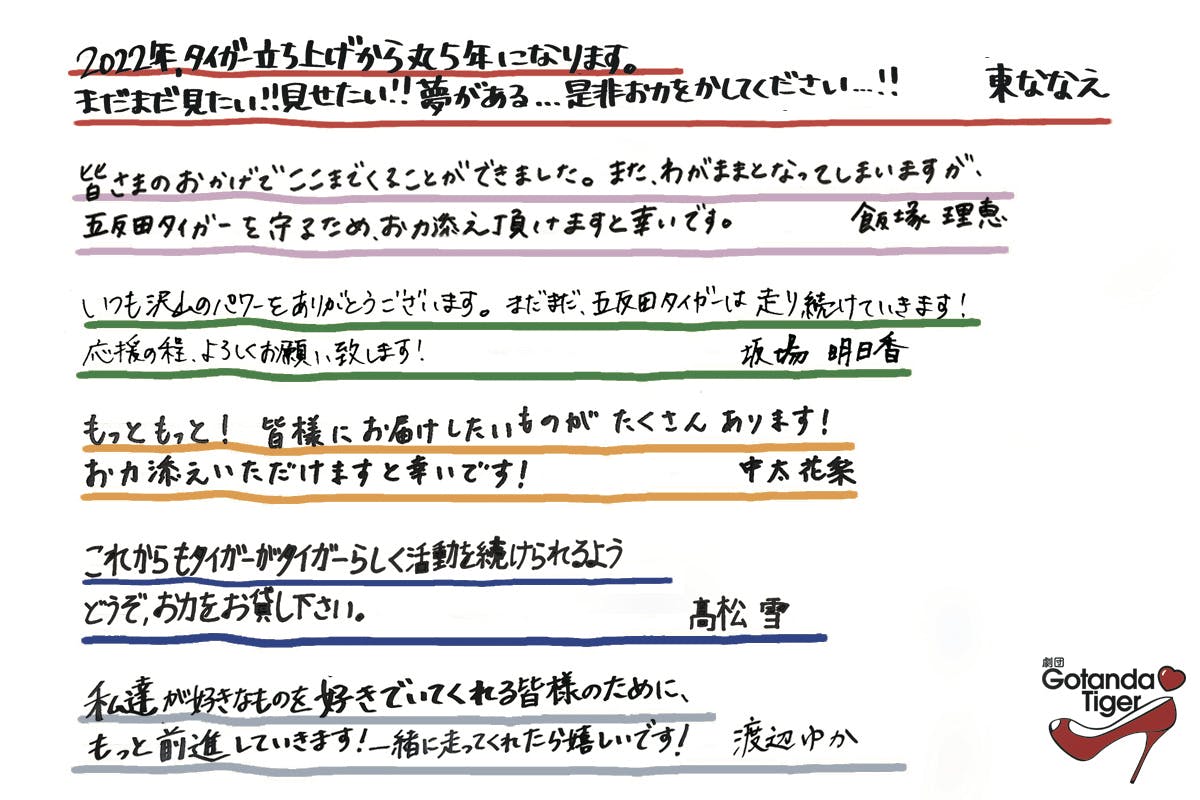 2022年,タイガー立ち上げから丸5年になります。
まだまだ見たい!!見せたい!!夢がある…是非お力をかしてください…!! 東ななえ
皆さまのおかげでここまでくることができました。また、わがままとなってしまいますが、
五反田タイガーを守るため、お力添え頂けますと幸いです。 飯塚 理恵
いつも沢山のパワーをありがとうございます。まだまだ、五反田タイガーは走り続けていきます!
応援の程、よろしくお願い致します! 坂場 明日香
もっともっと! 皆様にお届けしたいものがたくさんあります!
お力添えいただけますと幸いです! 中太 花梨
これからもタイガーがタイガーらしく活動を続けられるよう
どうぞ,お力をお貸し下さい。 高松 雪
私達が好きなものを好きでいてくれる皆様のために、
もっと前進していきます!一緒に走ってくれたら嬉しいです! 渡辺ゆか
劇団
Gotanda
Tiger